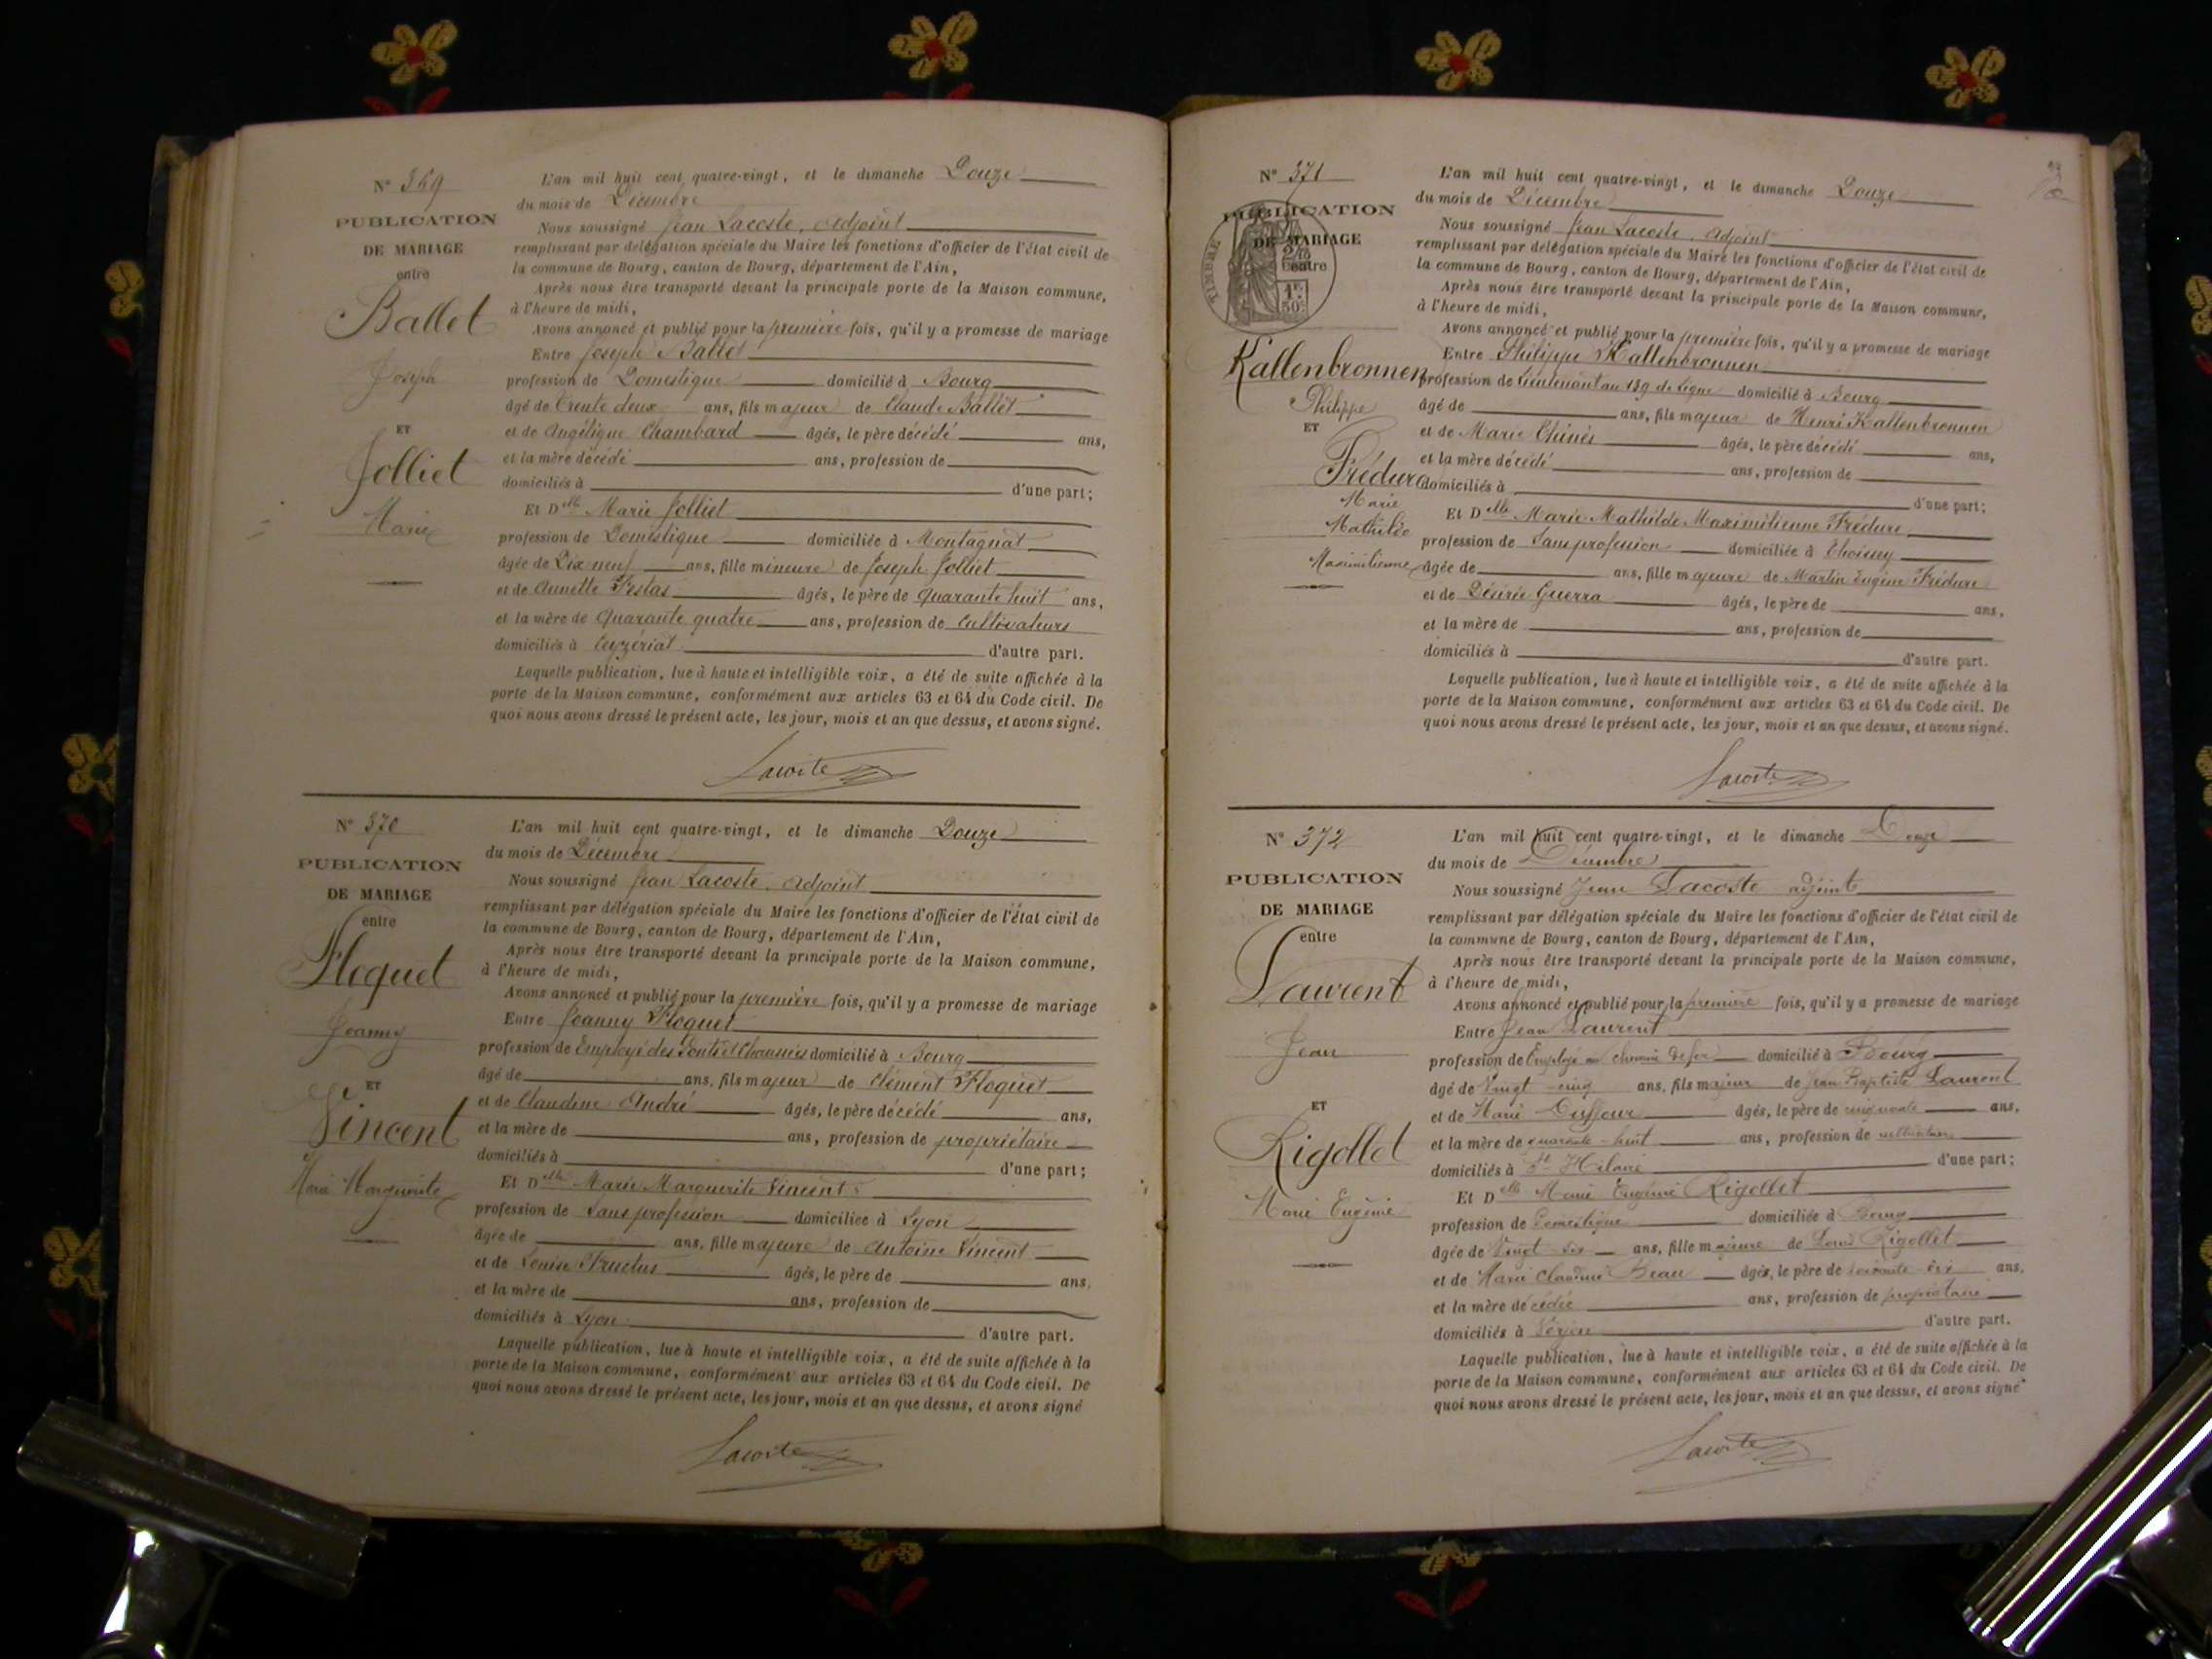 N° 369
PUBLICATION
DE MARIAGE
entre
Ballet
Joseph
ET
Jolliet
Marie
L'an mil huit cent quatre-vingt, et le dimanche Douze
du mois de Décembre
Nous soussigné Jean Lacoste, adjoint
remplissant par délégation spéciale du Maire les fonctions d'officier de l'état civil de
la commune de Bourg, canton de Bourg, département de l'Ain,
Après nous être transporté devant la principale porte de la Maison commune,
à l'heure de midi,
Avons annoncé et publié pour la première fois, qu'il y a promesse de mariage
Entre Joseph Ballet
profession de Domestique domicilié à Bourg
âgé de Trente deux ans, fils majeur de Claude Ballet
et de Angélique Chambard âgés, le père décédé ans,
et la mère décédé ans, profession de
domiciliés à d'une part;
Et Dlle Marie Jolliet
profession de Domestique domiciliée à Montagnat
âgée de Dix neuf ans, fille mineure de Joseph Jolliet
et de Annette Festas âgés, le père de Quarante huit ans,
et la mère de Quarante quatre ans, profession de Cultivateurs
domiciliés à Ceyzériat d'autre part.
Laquelle publication, lue à haute et intelligible voix, a été de suite affichée à la
porte de la Maison commune, conformément aux articles 63 et 64 du Code civil. De
quoi nous avons dressé le présent acte, les jour, mois et an que dessus, et avons signé.
Lacoste
N° 370
PUBLICATION
DE MARIAGE
entre
Floquet
Jeanny
ET
Vincent
Marie Marguerite
L'an mil huit cent quatre-vingt, et le dimanche Douze
du mois de Décembre
Nous soussigné Jean Lacoste, adjoint
remplissant par délégation spéciale du Maire les fonctions d'officier de l'état civil de
la commune de Bourg, canton de Bourg, département de l'Ain,
Après nous être transporté devant la principale porte de la Maison commune,
à l'heure de midi,
Avons annoncé et publié pour la première fois, qu'il y a promesse de mariage
Entre Jeanny Floquet
profession de Employé des Ponts et Chaussées domicilié à Bourg
âgé de ans, fils majeur de Clément Floquet
et de Claudine André âgés, le père décédé ans,
et la mère de ans, profession de propriétaire
domiciliés à d'une part;
Et Dlle Marie Marguerite Vincent
profession de Sans profession domiciliée à Lyon
âgée de ans, fille majeure de Antoine Vincent
et de Louise Fructus âgés, le père de ans,
et la mère de ans, profession de
domiciliés à Lyon d'autre part.
Laquelle publication, lue à haute et intelligible voix, a été de suite affichée à la
porte de la Maison commune, conformément aux articles 63 et 64 du Code civil. De
quoi nous avons dressé le présent acte, les jour, mois et an que dessus, et avons signé
Lacoste
N° 371
PUBLICATION
DE MARIAGE
entre
TIMBRE
1F.
50c.
Kallenbronnen
Philippe
ET
Frédure
Marie
Mathilde
Maximilienne
L'an mil huit cent quatre-vingt, et le dimanche Douze
du mois de Décembre
Nous soussigné Jean Lacoste, adjoint
remplissant par délégation spéciale du Maire les fonctions d'officier de l'état civil de
la commune de Bourg, canton de Bourg, département de l'Ain,
Après nous être transporté devant la principale porte de la Maison commune,
à l'heure de midi,
Avons annoncé et publié pour la première fois, qu'il y a promesse de mariage
Entre Philippe Kallenbronnen
profession de Lieutenant au 139 de Ligne domicilié à Bourg
âgé de ans, fils majeur de Henri Kallenbronnen
et de Marie Thinès âgés, le père décédé ans,
et la mère décédé ans, profession de
domiciliés à d'une part;
Et Dlle Marie Mathilde Maximilienne Frédure
profession de Sans profession domiciliée à Choisey
âgée de ans, fille majeure de Martin Eugène Frédure
et de Désirée Guerra âgés, le père de ans,
et la mère de ans, profession de
domiciliés à d'autre part.
Laquelle publication, lue à haute et intelligible voix, a été de suite affichée à la
porte de la Maison commune, conformément aux articles 63 et 64 du Code civil. De
quoi nous avons dressé le présent acte, les jour, mois et an que dessus, et avons signé.
Lacoste
N° 372
PUBLICATION
DE MARIAGE
entre
Laurent
Jean
ET
Rigollet
Marie Eugénie
L'an mil huit cent quatre-vingt, et le dimanche Douze
du mois de Décembre
Nous soussigné Jean Lacoste adjoint
remplissant par délégation spéciale du Maire les fonctions d'officier de l'état civil de
la commune de Bourg, canton de Bourg, département de l'Ain,
Après nous être transporté devant la principale porte de la Maison commune,
à l'heure de midi,
Avons annoncé et publié pour la première fois, qu'il y a promesse de mariage
Entre Jean Laurent
profession de Employé au chemin de fer domicilié à Bourg
âgé de Vingt-cinq ans, fils majeur de Jean Baptiste Laurent
et de Marie Duffour âgés, le père de cinquante ans,
et la mère de quarante-huit ans, profession de cultivateurs
domiciliés à St Hilaire d'une part;
Et Dlle Marie Eugénie Rigollet
profession de Domestique domiciliée à Bourg
âgée de Vingt-six ans, fille majeure de Louis Rigollet
et de Marie Claudine Beau âgés, le père de soixante-six ans,
et la mère décédée ans, profession de propriétaire
domiciliés à d'autre part.
Laquelle publication, lue à haute et intelligible voix, a été de suite affichée à la
porte de la Maison commune, conformément aux articles 63 et 64 du Code civil. De
quoi nous avons dressé le présent acte, les jour, mois et an que dessus, et avons signé
Lacoste